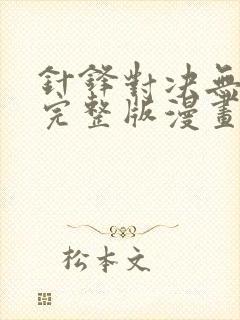 針鋒對决無
完整版漫畫
松本文